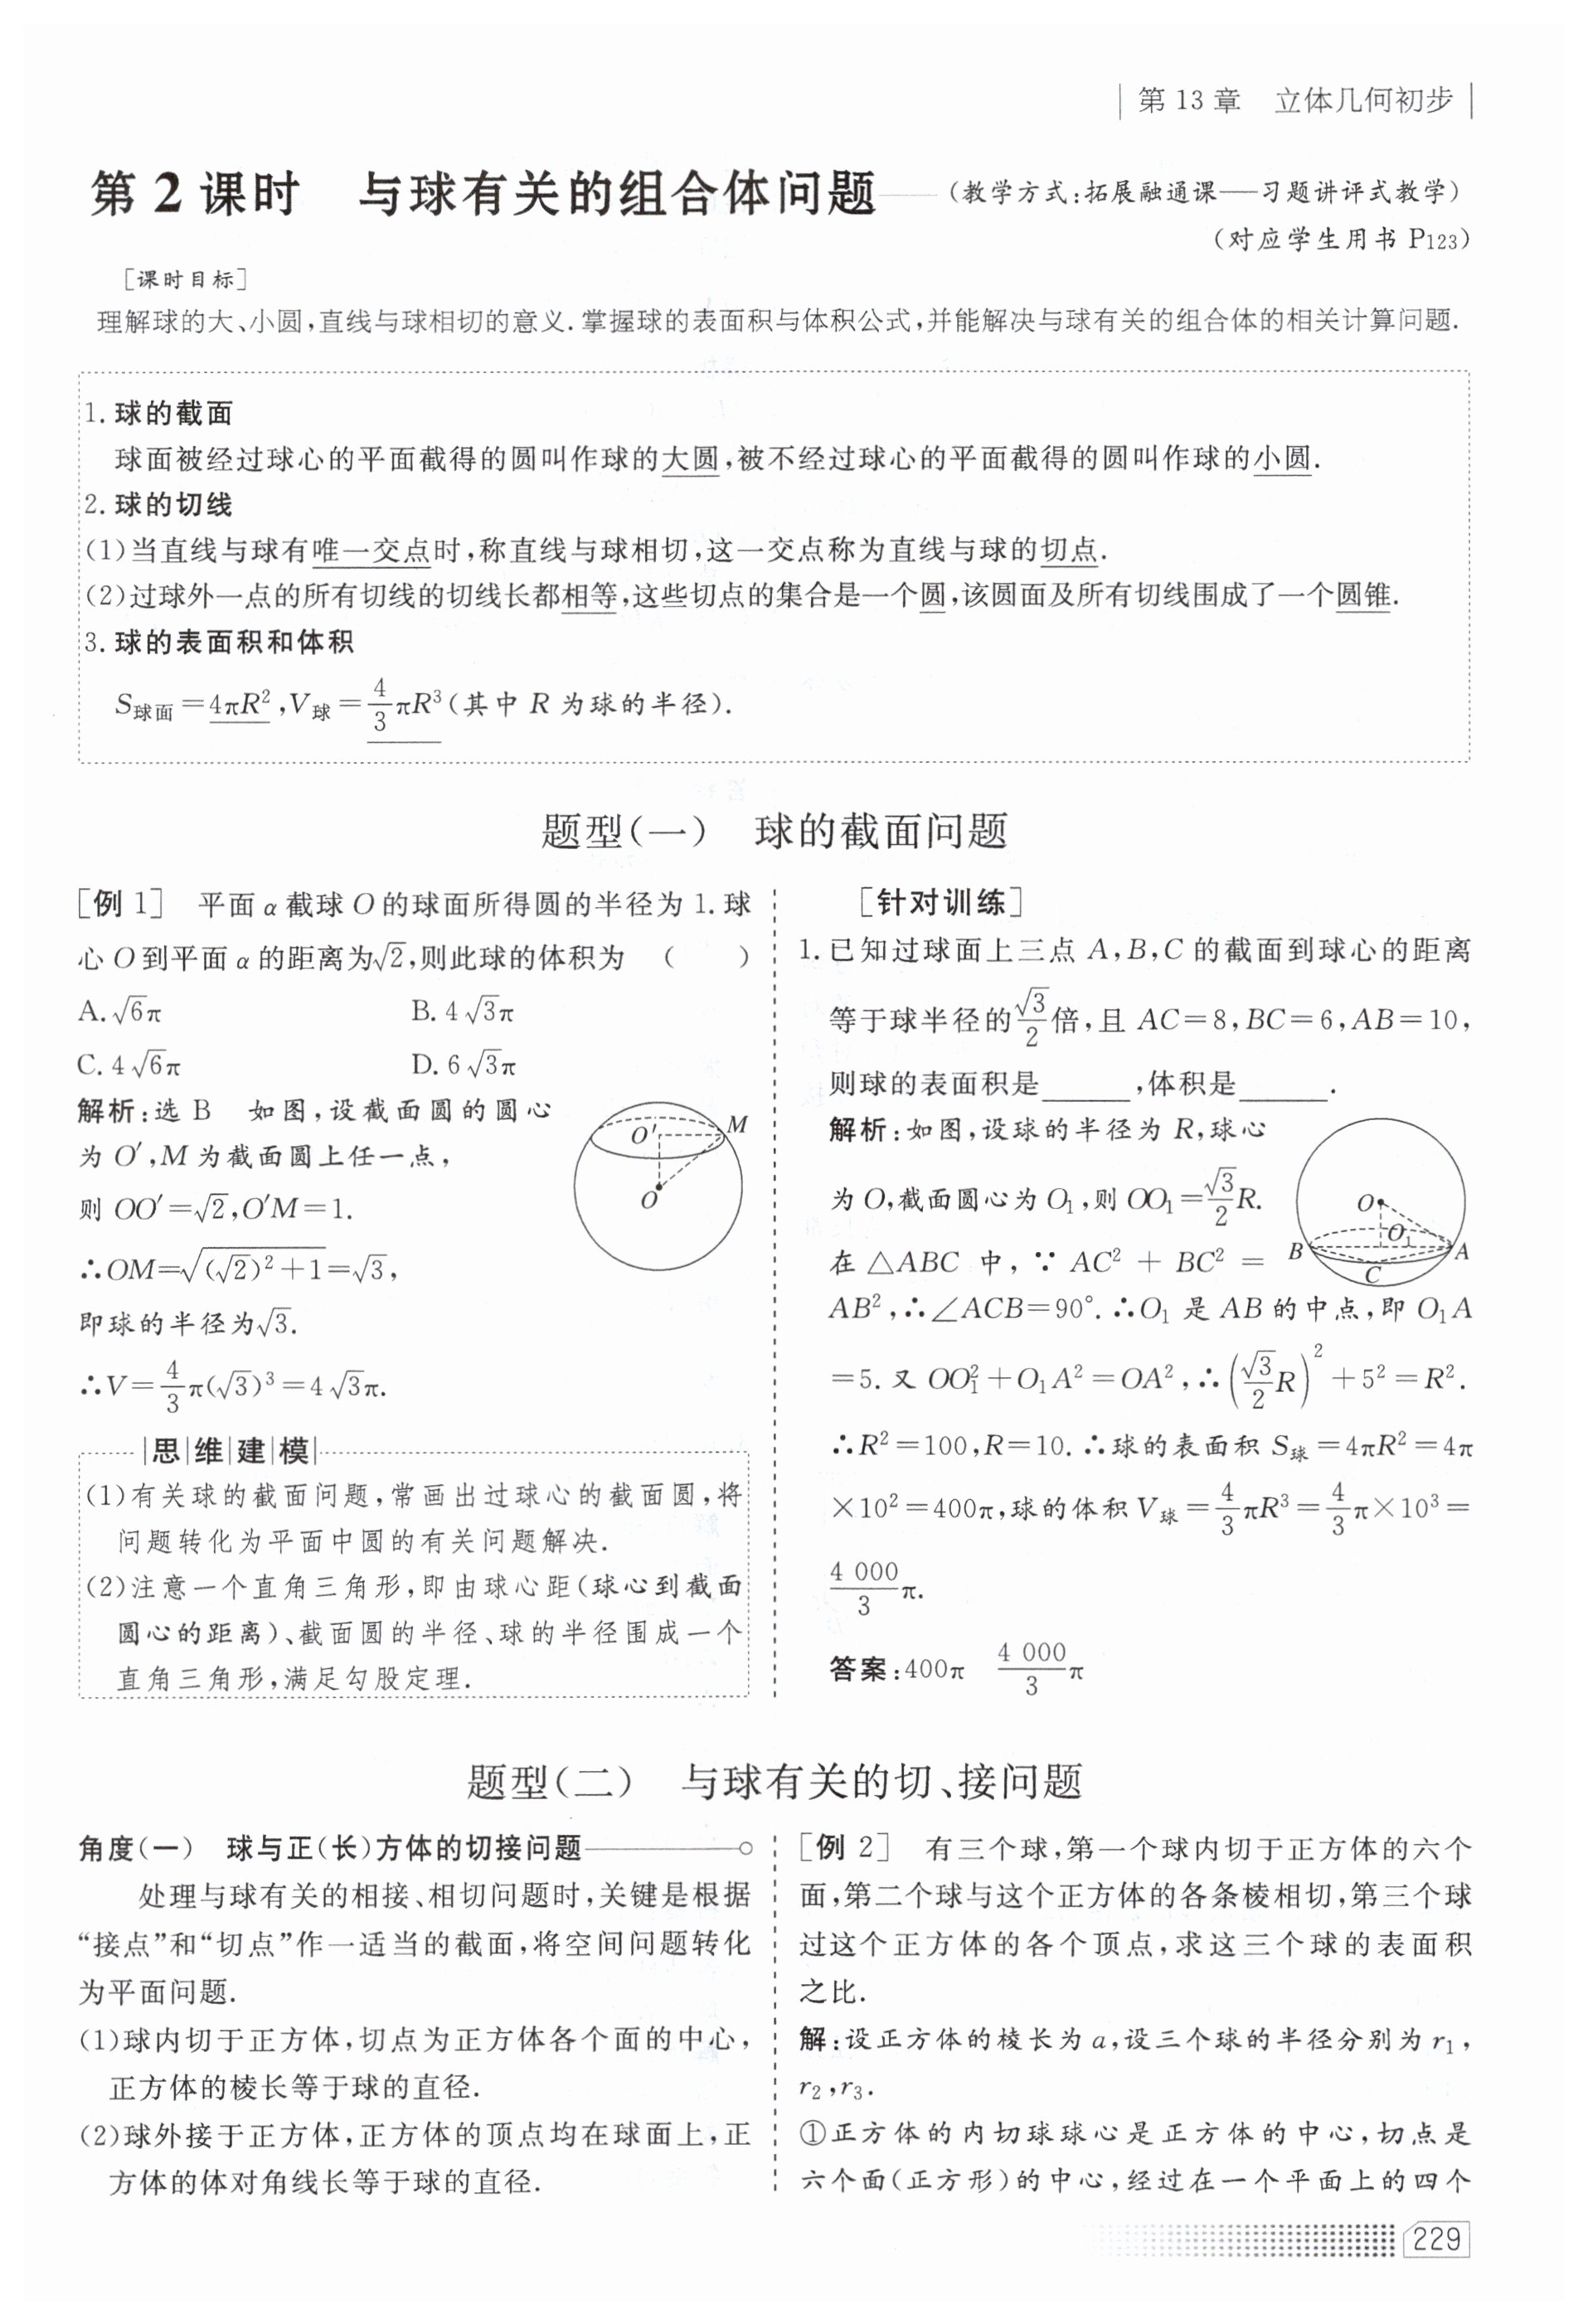 第 13 章　立体几何初步
第 2 课时　与球有关的组合体问题——(教学方式:拓展融通课——习题讲评式教学)
(对应学生用书 P123)
[课时目标]
理解球的大、小圆,直线与球相切的意义.掌握球的表面积与体积公式,并能解决与球有关的组合体的相关计算问题.
1. 球的截面
球面被经过球心的平面截得的圆叫作球的大圆,被不经过球心的平面截得的圆叫作球的小圆.
2. 球的切线
(1)当直线与球有唯一交点时,称直线与球相切,这一交点称为直线与球的切点.
(2)过球外一点的所有切线的切线长都相等,这些切点的集合是一个圆,该圆面及所有切线围成了一个圆锥.
3. 球的表面积和体积
S球面=4πR²,V球=4/3πR³(其中 R 为球的半径).
题型(一)　球的截面问题
[例 1]　平面 α 截球 O 的球面所得圆的半径为 1.球
心 O 到平面 α 的距离为√2,则此球的体积为　(　　)
A. √6π　　B. 4√3π
C. 4√6π　　D. 6√3π
解析:选 B　如图,设截面圆的圆心
为 O′,M 为截面圆上任一点,
则 OO′=√2,O′M=1.
∴OM=√((√2)²+1)=√3,
即球的半径为√3.
∴V=4/3π(√3)³=4√3π.
O′
M
O
|思|维|建|模|
(1)有关球的截面问题,常画出过球心的截面圆,将
问题转化为平面中圆的有关问题解决.
(2)注意一个直角三角形,即由球心距(球心到截面
圆心的距离)、截面圆的半径、球的半径围成一个
直角三角形,满足勾股定理.
[针对训练]
1. 已知过球面上三点 A,B,C 的截面到球心的距离
等于球半径的√3/2倍,且 AC=8,BC=6,AB=10,
则球的表面积是______,体积是______.
解析:如图,设球的半径为 R,球心
为 O,截面圆心为 O₁,则 OO₁=√3/2R.
在 △ABC 中,∵ AC² + BC² =
AB²,∴∠ACB=90°.∴O₁ 是 AB 的中点,即 O₁A
=5. 又 OO₁²+O₁A²=OA²,∴(√3/2R)²+5²=R².
∴R²=100,R=10.∴球的表面积 S球=4πR²=4π
×10²=400π,球的体积 V球=4/3πR³=4/3π×10³=
4 000/3π.
O
O₁
B
A
C
答案:400π　4 000/3π
题型(二)　与球有关的切、接问题
角度(一)　球与正(长)方体的切接问题
处理与球有关的相接、相切问题时,关键是根据
“接点”和“切点”作一适当的截面,将空间问题转化
为平面问题.
(1)球内切于正方体,切点为正方体各个面的中心,
正方体的棱长等于球的直径.
(2)球外接于正方体,正方体的顶点均在球面上,正
方体的体对角线长等于球的直径.
[例 2]　有三个球,第一个球内切于正方体的六个
面,第二个球与这个正方体的各条棱相切,第三个球
过这个正方体的各个顶点,求这三个球的表面积
之比.
解:设正方体的棱长为 a,设三个球的半径分别为 r₁,
r₂,r₃.
①正方体的内切球球心是正方体的中心,切点是
六个面(正方形)的中心,经过在一个平面上的四个
229